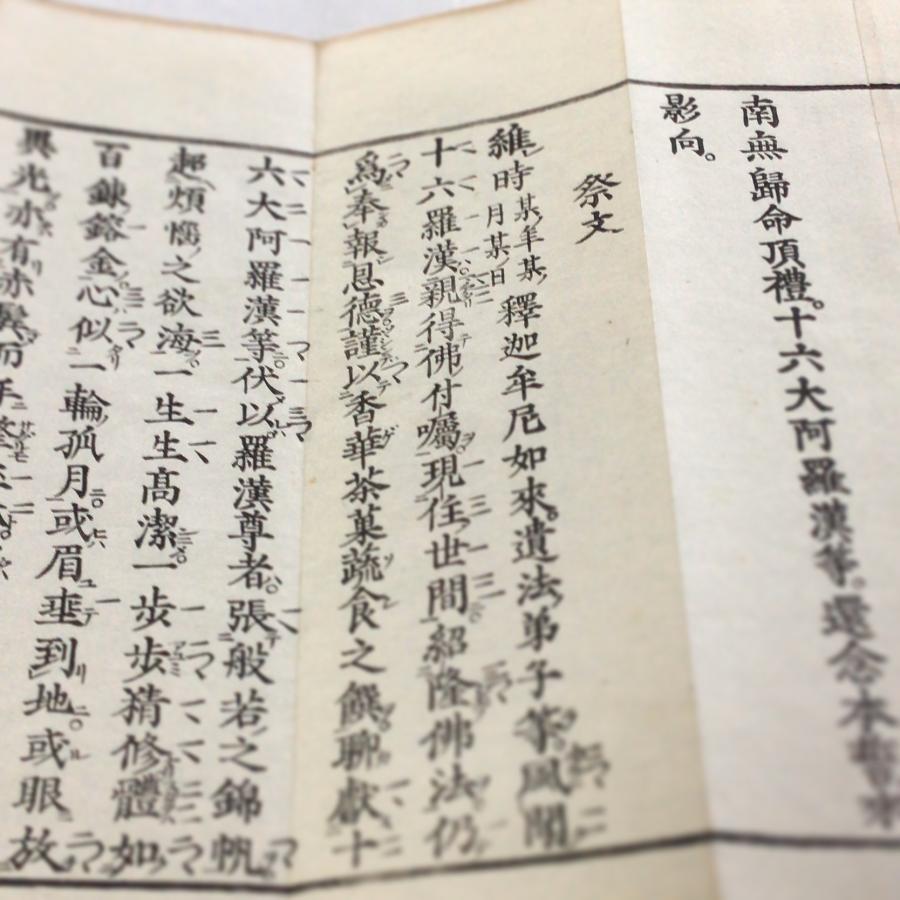 南無歸命頂禮。十六大阿羅漢等。還念本誓來
影向。
祭文
維時某年某月某日釋迦牟尼如來遺法弟子等。風聞
十六羅漢親得佛付囑現住世間紹隆佛法仍
爲奉報恩德謹以香華茶菓蔬食之饌聊獻十
六大阿羅漢等伏以羅漢尊者張般若之錦帆
超煩惱之欲海一生生高潔一步步精修體如
百鍊鎔金心似一輪孤月或眉垂到地。或眼放
異光亦有赤髮而手